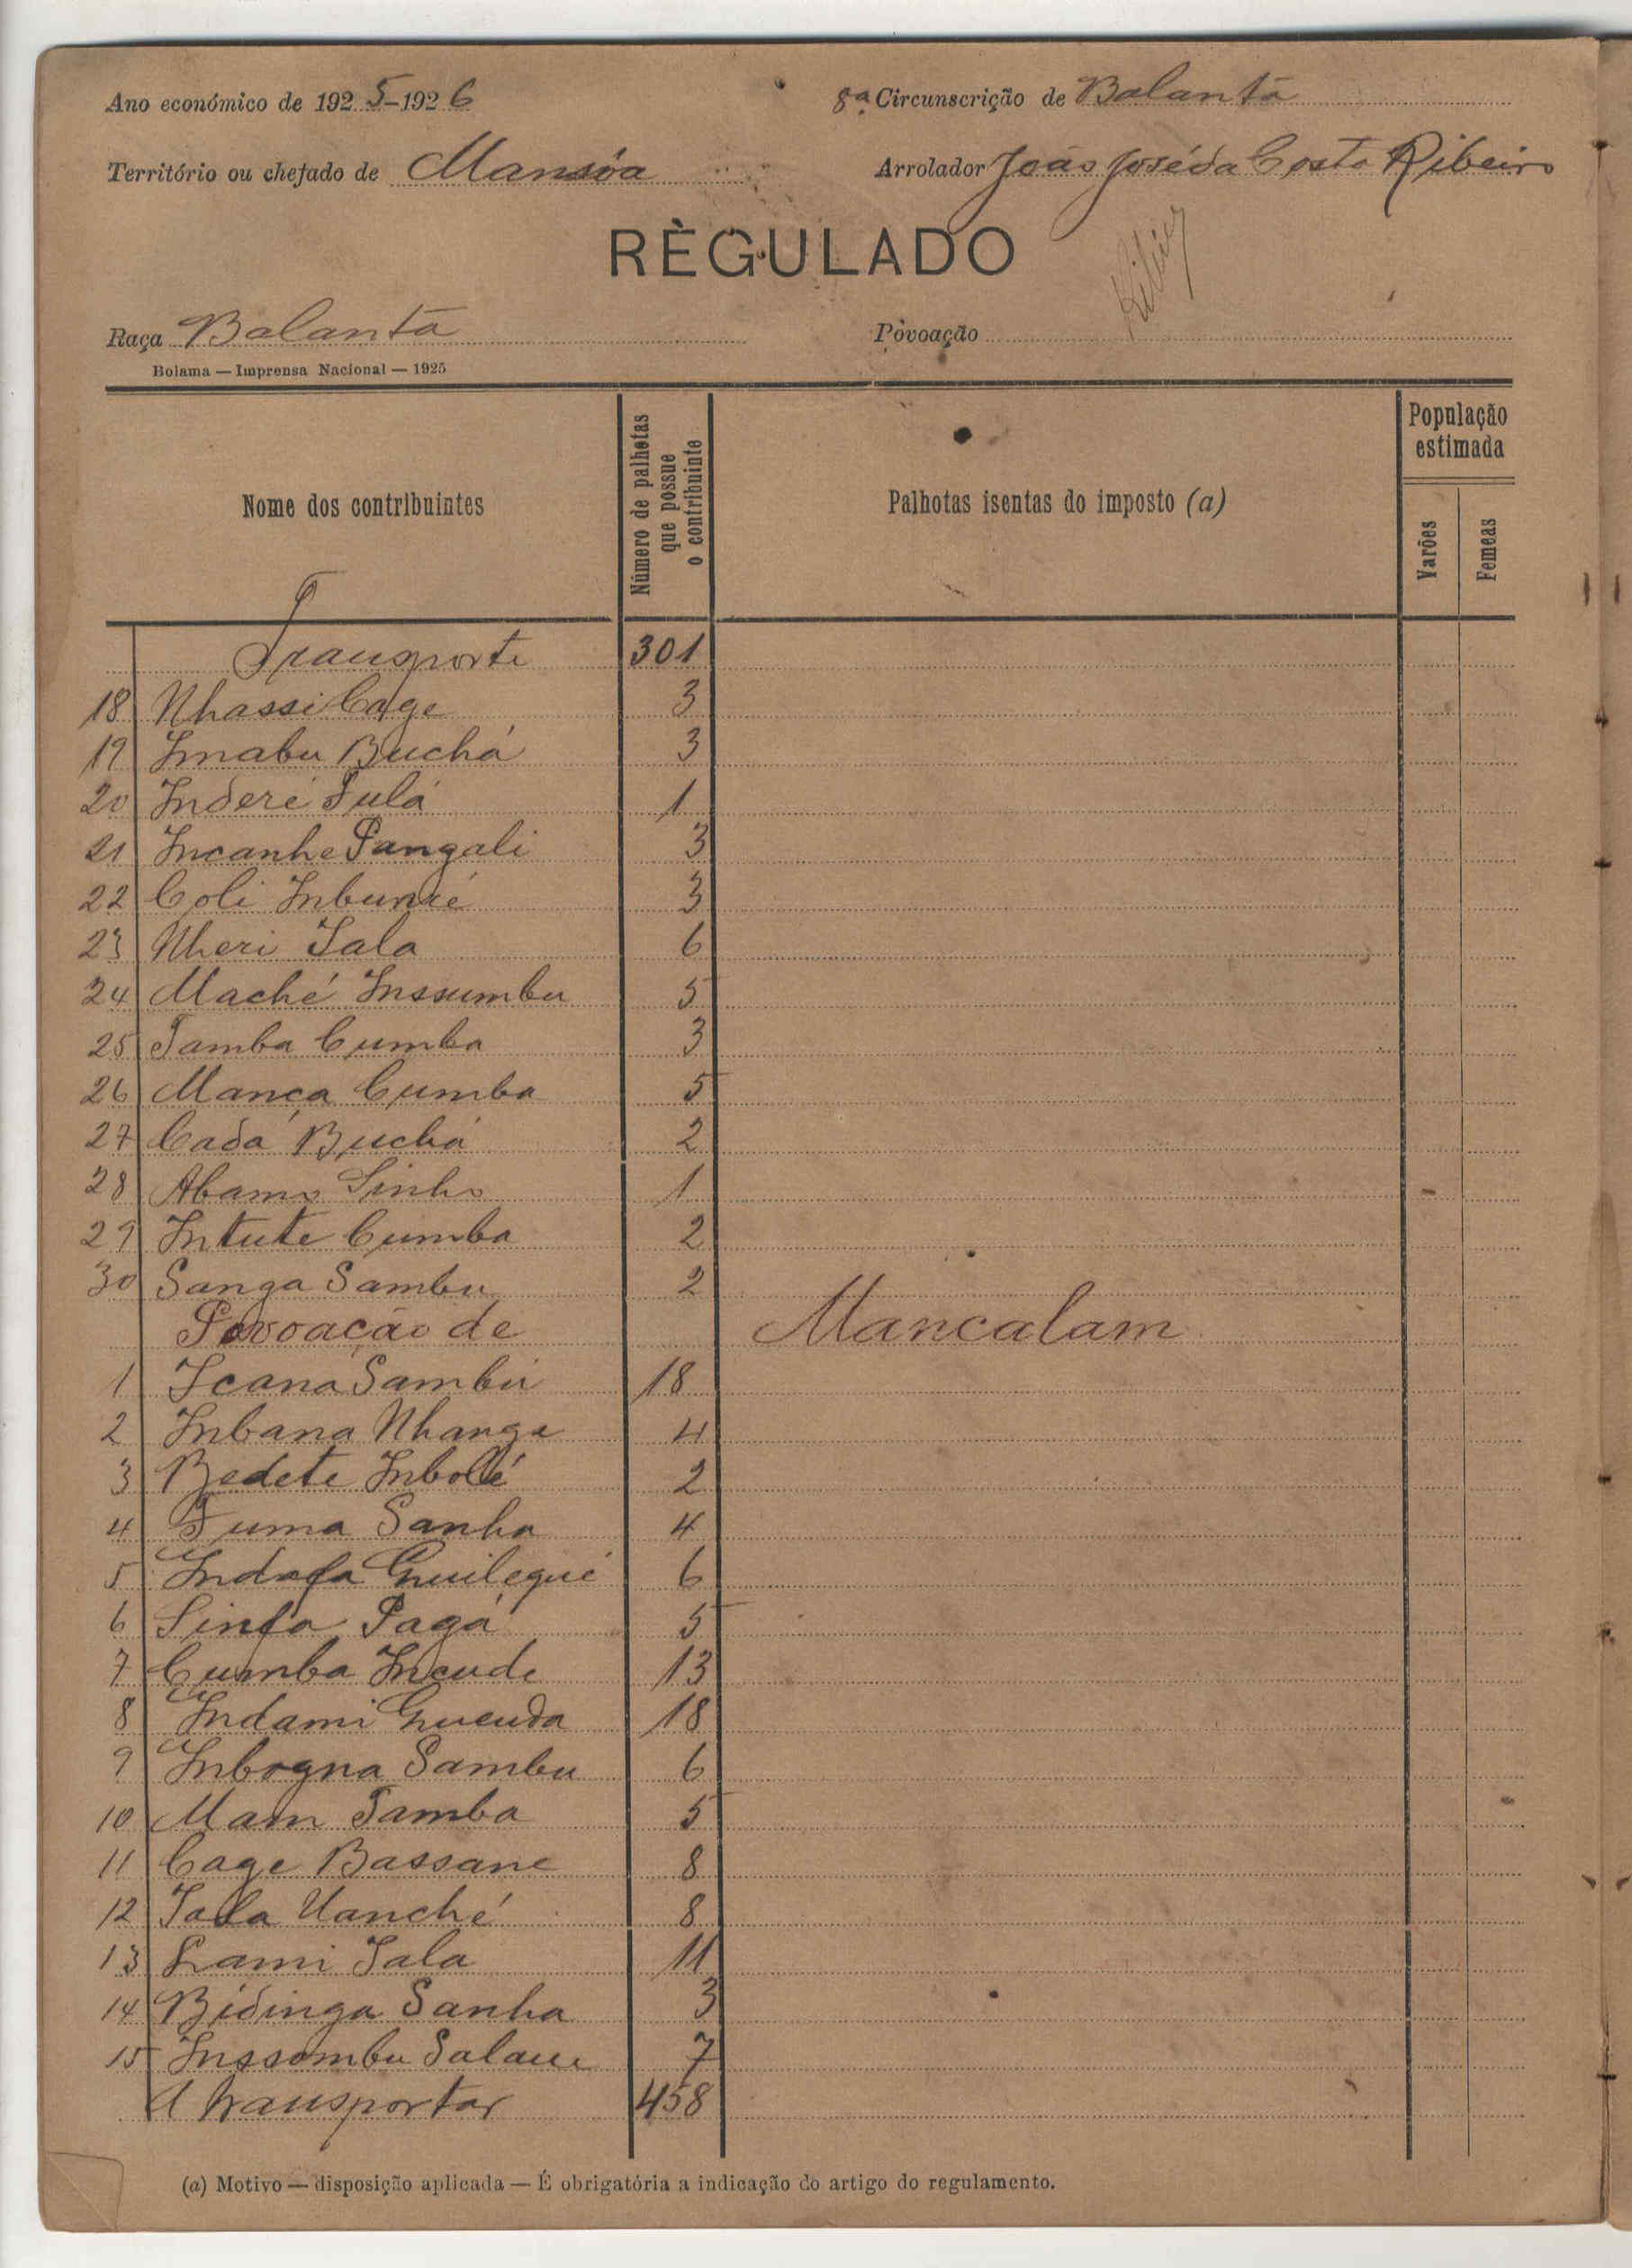 Ano económico de 1925-1926
8ª Circunscrição de Balanta
Território ou chefado de Mansôa
Arrolador João José da Costa Ribeiro
RÈGULADO
Raça Balanta
Povoação
Bolama — Imprensa Nacional — 1925
Nome dos contribuintes
Número de palhotas que possue o contribuinte
Palhotas isentas do imposto (a)
População estimada
Varões
Femeas
Transporte 301
18 Nhassi Cage 3
19 Imabu Buchá 3
20 Inderé Tulá 1
21 Incanhe Pangali 3
22 Coli Inbunié 3
23 Nheri Iala 6
24 Maché Inssumbu 5
25 Tamba Cumba 3
26 Manca Cumba 5
27 Cadá Buchá 2
28 Abamo Sinho 1
29 Intute Cumba 2
30 Sanga Sambu 2
Povoação de Mancalam
1 Icana Sambú 18
2 Inbana Nhanga 4
3 Bedete Inbolé 2
4 Tuma Sanha 4
5 Indafa Guilegué 6
6 Sinfa Pagá 5
7 Cumba Incude 13
8 Indami Guenda 18
9 Inbogna Sambu 6
10 Mam Tamba 5
11 Cage Bassane 8
12 Iala Uanché 8
13 Lami Iala 11
14 Bidinga Sanha 3
15 Inssombu Salaue 7
A transportar 458
(a) Motivo — disposição aplicada — É obrigatória a indicação do artigo do regulamento.